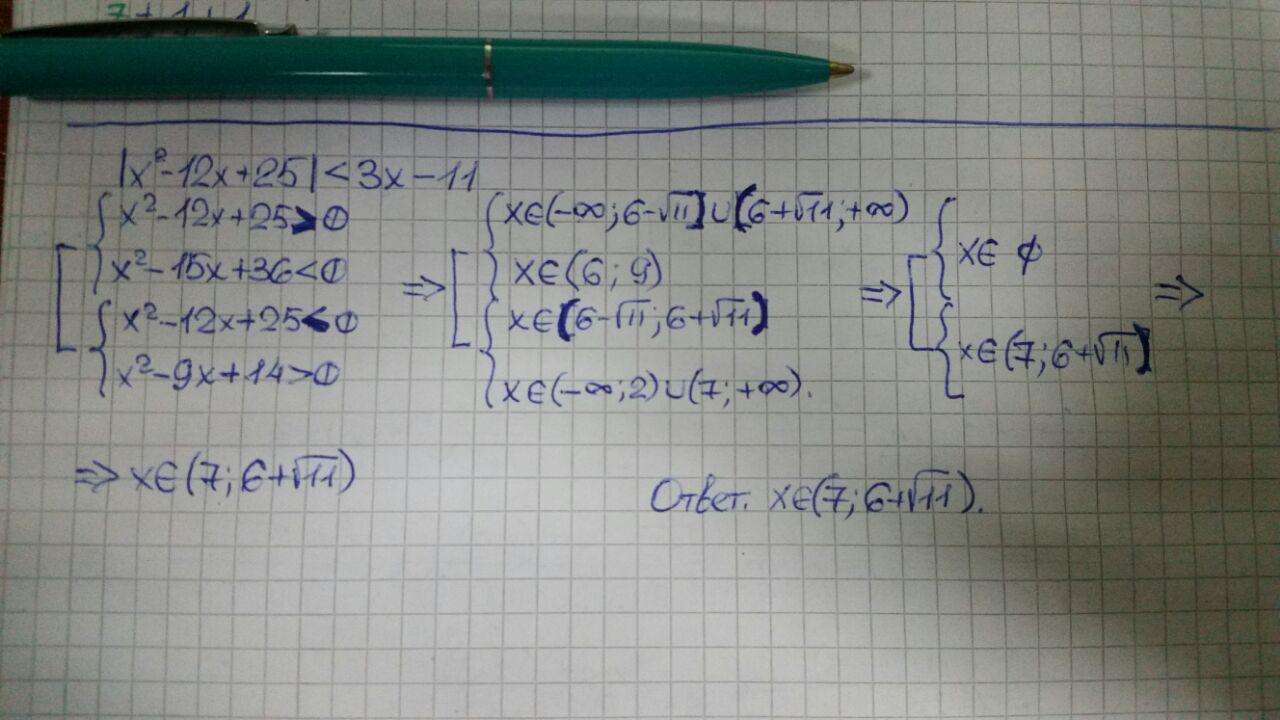 7 + 1 + 1
|x²-12x+25|<3x-11
x²-12x+25>0
x²-15x+36<0
x²-12x+25<0
x²-9x+14>0
=> x∈(-∞;6-√11]∪[6+√11;+∞)
x∈(6;9)
x∈[6-√11;6+√11]
x∈(-∞;2)∪(7;+∞).
=> x∈ ∅
x∈(7;6+√11] =>
=> x∈(7;6+√11)
Ответ. x∈(7;6+√11).